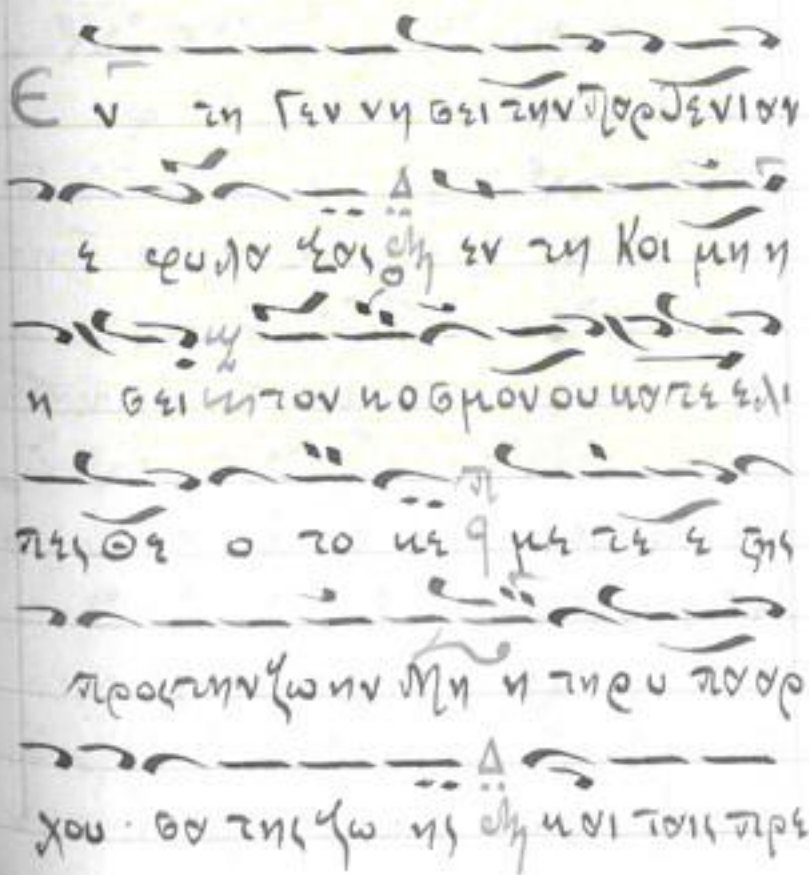 Ε ν τη Γεν νη σει την Παρθενιαν
ε φυλα ξας εν τη Κοι μη η
η σει τον κοσμον ου κατε ελι
πες Θε ο το κε με τε ε στης
προς την ζω ην Μη η τηρ υ πα αρ
χου σα της ζω ης και ταις πρε